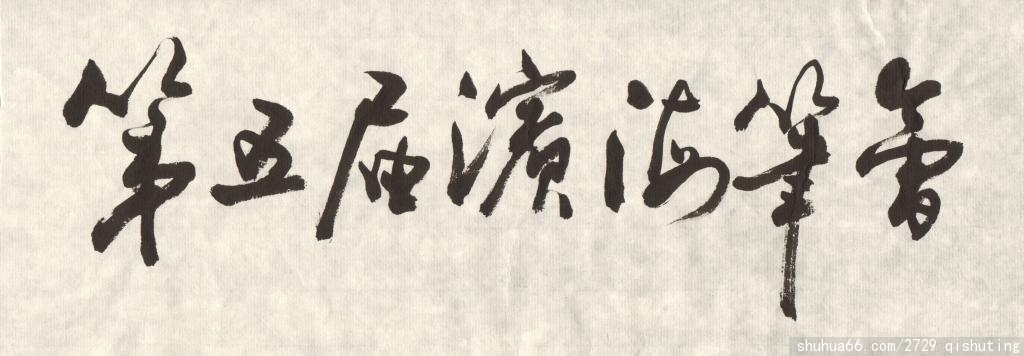 第五届濱海筆會
shuhua66.com/2729 qishuting